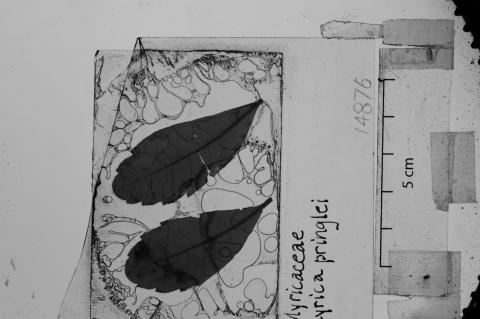 14876
5 cm
Myricaceae
Myrica pringlei